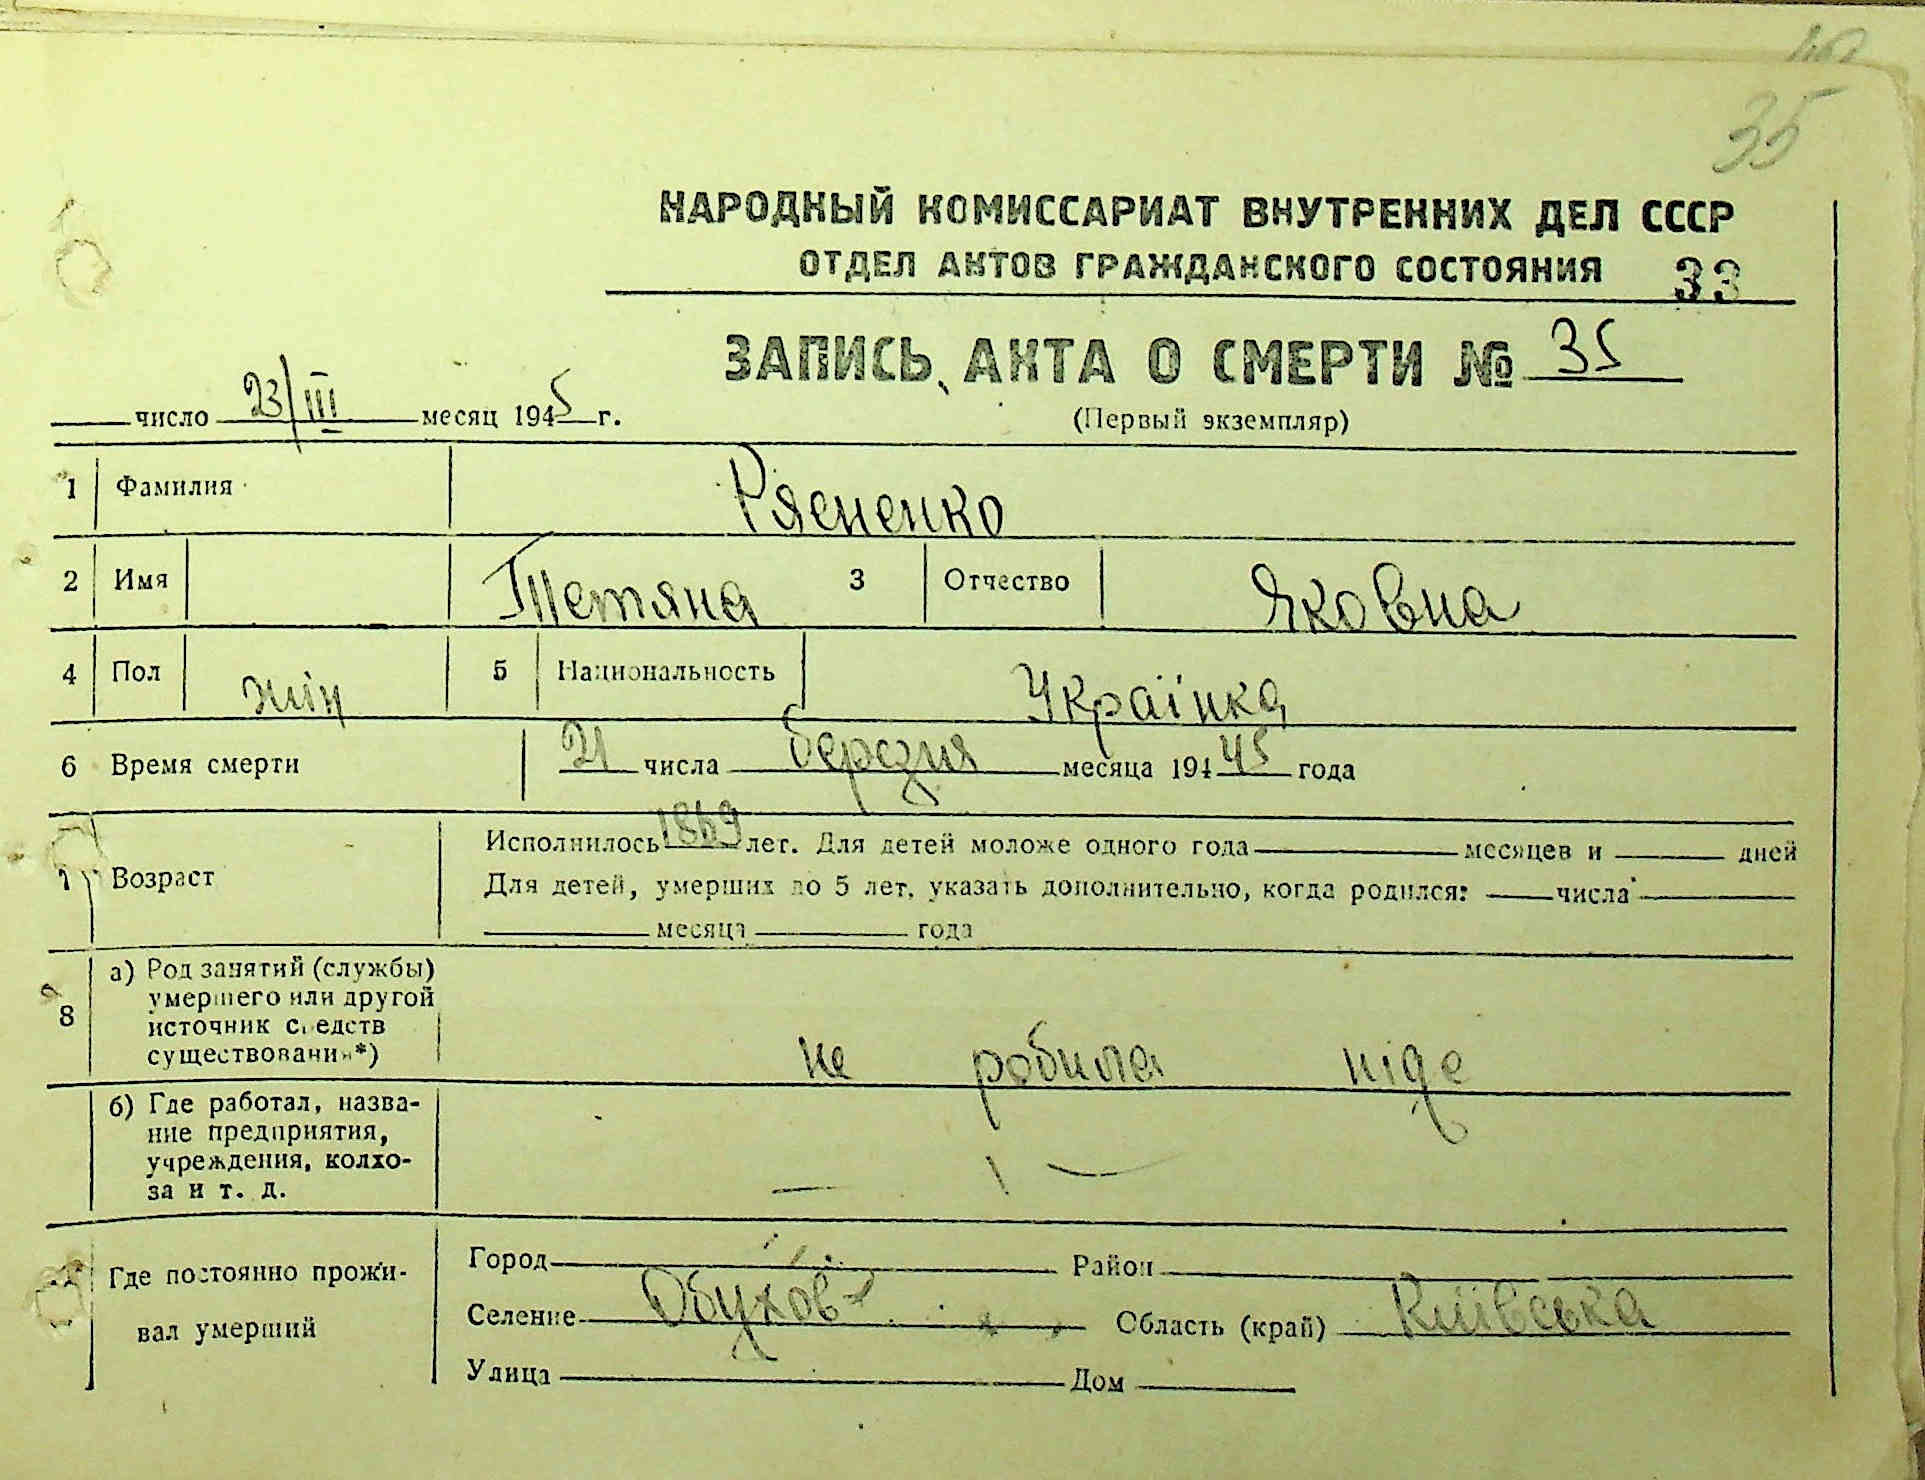 35
НАРОДНЫЙ КОМИССАРИАТ ВНУТРЕННИХ ДЕЛ СССР
ОТДЕЛ АКТОВ ГРАЖДАНСКОГО СОСТОЯНИЯ 33
ЗАПИСЬ АКТА О СМЕРТИ № 35
число 23/III месяц 1945 г.
(Первый экземпляр)
1 Фамилия Рясненко
2 Имя Тетяна 3 Отчество Яковна
4 Пол жін 5 Национальность Українка
6 Время смерти 21 числа березня месяца 194 45 года
7 Возраст
Исполнилось 1869 лет. Для детей моложе одного года месяцев и дней
Для детей, умерших до 5 лет, указать дополнительно, когда родился: числа
месяца года
8 а) Род занятий (службы)
умершего или другой
источник средств
существования*)
не робила ніде
б) Где работал, назва-
ние предприятия,
учреждения, колхо-
за и т. д.
Где постоянно прожи-
вал умерший
Город Район
Селение Обухов Область (край) Київська
Улица Дом